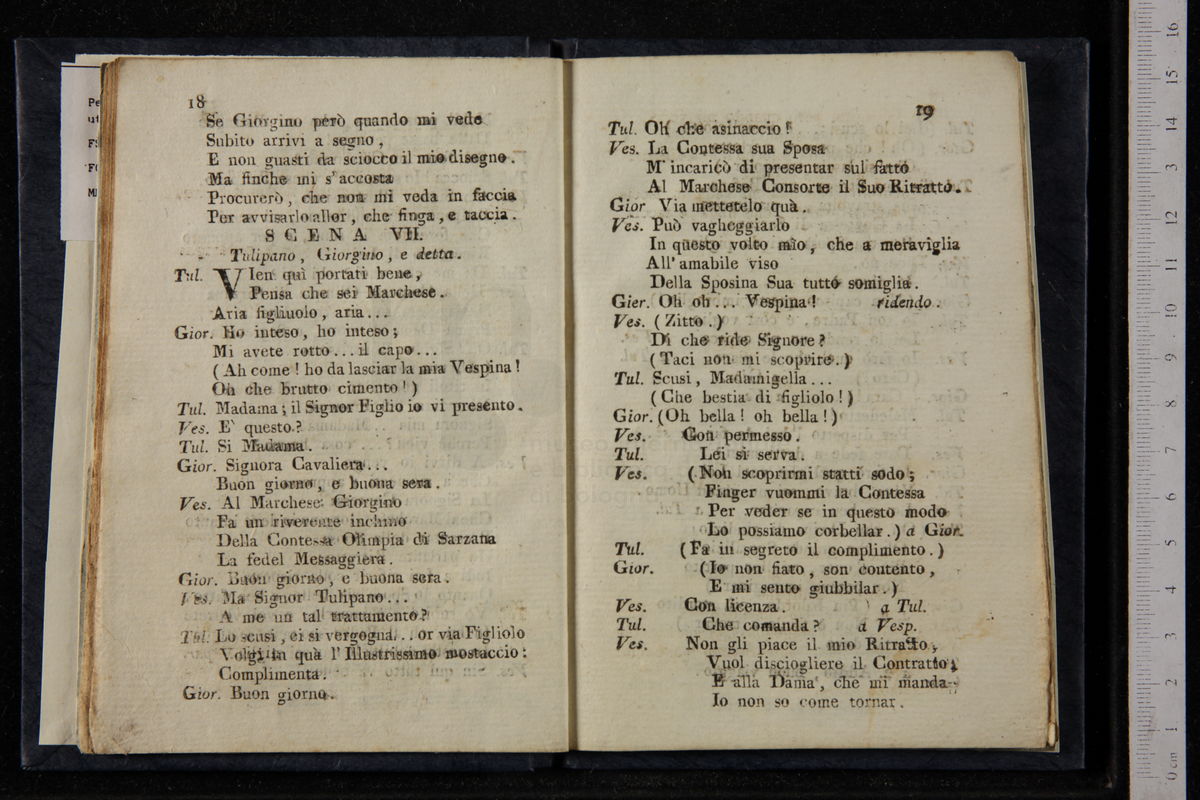 18
Se Giorgino però quando mi vede
Subito arrivi a segno,
E non guasti da sciocco il mio disegno.
Ma finche mi s'accosta
Procurerò, che non mi veda in faccia
Per avvisarlo allor, che finga, e taccia.
SCENA VII.
Tulipano, Giorgino, e detta.
Tul. VIen quì portati bene,
Pensa che sei Marchese.
Aria figliuolo, aria...
Gior. Ho inteso, ho inteso;
Mi avete rotto... il capo...
(Ah come! ho da lasciar la mia Vespina!
Oh che brutto cimento!)
Tul. Madama; il Signor Figlio io vi presento.
Ves. E' questo?
Tul. Si Madama.
Gior. Signora Cavaliera...
Buon giorno, e buona sera.
Ves. Al Marchese Giorgino
Fa un riverente inchino
Della Contessa Olimpia di Sarzana
La fedel Messaggiera.
Gior. Buon giorno, e buona sera.
Ves. Ma Signor Tulipano...
A me un tal trattamento?
Tul. Lo scusi, ei si vergogna... or via Figliolo
Volgiti in quà l'Illustrissimo mostaccio:
Complimenta.
Gior. Buon giorno.
19
Tul. Oh che asinaccio!
Ves. La Contessa sua Sposa
M' incaricò di presentar sul fatto
Al Marchese Consorte il Suo Ritratto.
Gior Via mettetelo quà.
Ves. Può vagheggiarlo
In questo volto mio, che a meraviglia
All' amabile viso
Della Sposina Sua tutto somiglia.
Gier. Oh oh... Vespina! ridendo.
Ves. (Zitto.)
Di che ride Signore?
(Taci non mi scoprire.)
Tul. Scusi, Madamigella...
(Che bestia di figliolo!)
Gior. (Oh bella! oh bella!)
Ves. Con permesso.
Tul. Lei si serva.
Ves. (Non scoprirmi statti sodo;
Finger vuommi la Contessa
Per veder se in questo modo
Lo possiamo corbellar.) a Gior.
Tul. (Fa in segreto il complimento.)
Gior. (Io non fiato, son contento,
E mi sento giubbilar.)
Ves. Con licenza. a Tul.
Tul. Che comanda? a Vesp.
Ves. Non gli piace il mio Ritratto,
Vuol disciogliere il Contratto;
E alla Dama, che mi manda
Io non so come tornar.
0 cm 1 2 3 4 5 6 7 8 9 10 11 12 13 14 15 16